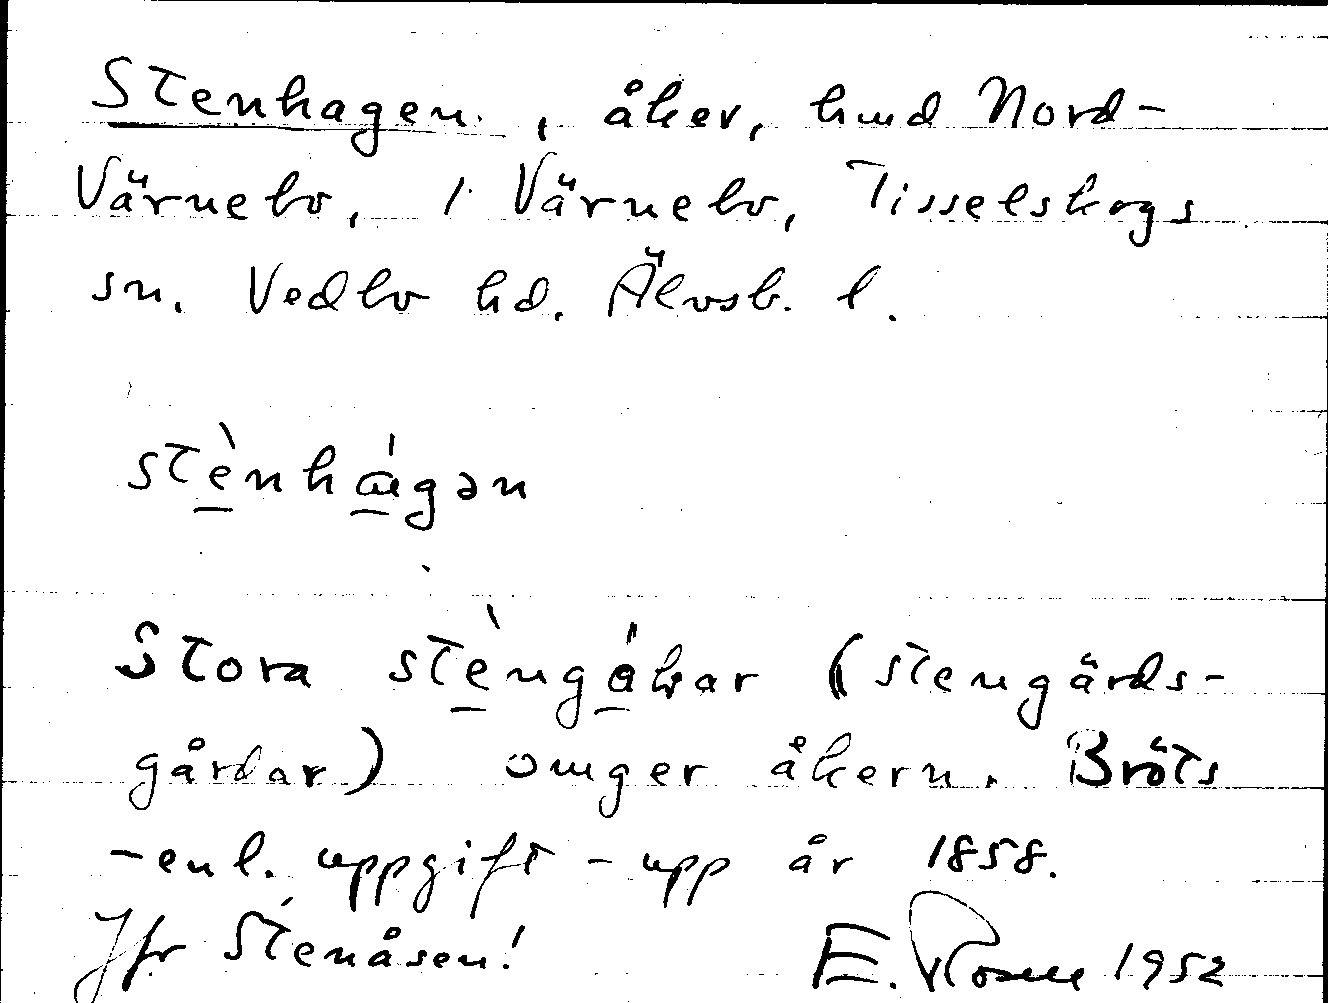 Stenhagen, åker, hmd Nord-
Värnebo, i Värnebo, Tisselskogs
sn. Vedbo hd. Älvsb. l.
stènhágən
Stora stèngákar (stengärds-
gårdar) omger åkern. Bröts
- enl. uppgift - upp år 1858.
Jfr Stenåsen!
E. Rosell 1952